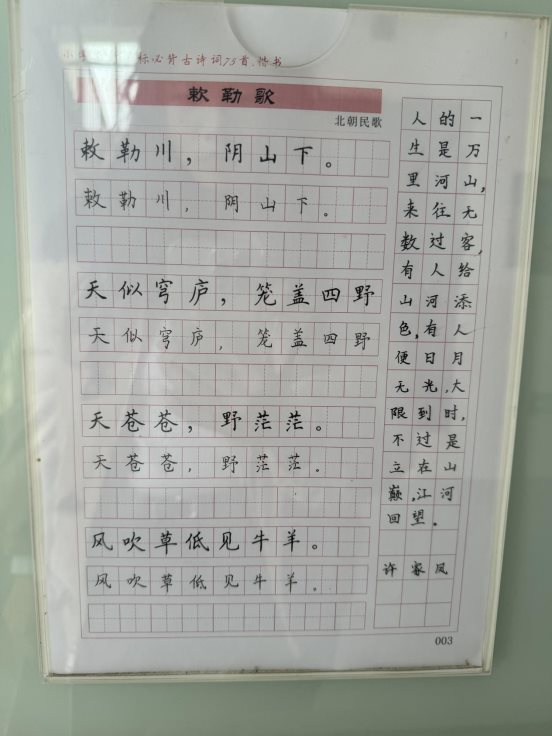 标必背古诗词75首.楷书
敕勒歌
北朝民歌
敕勒川，阴山下。
敕勒川，阴山下。
天似穹庐，笼盖四野
天似穹庐，笼盖四野
天苍苍，野茫茫。
天苍苍，野茫茫。
风吹草低见牛羊。
风吹草低见牛羊。
人的一
生是万
里河山，
来往无
数过客，
有人给
山河添
色，有人
便日月
无光，大
限到时，
不过是
立在山
巅，江河
回望。
许家凤
003